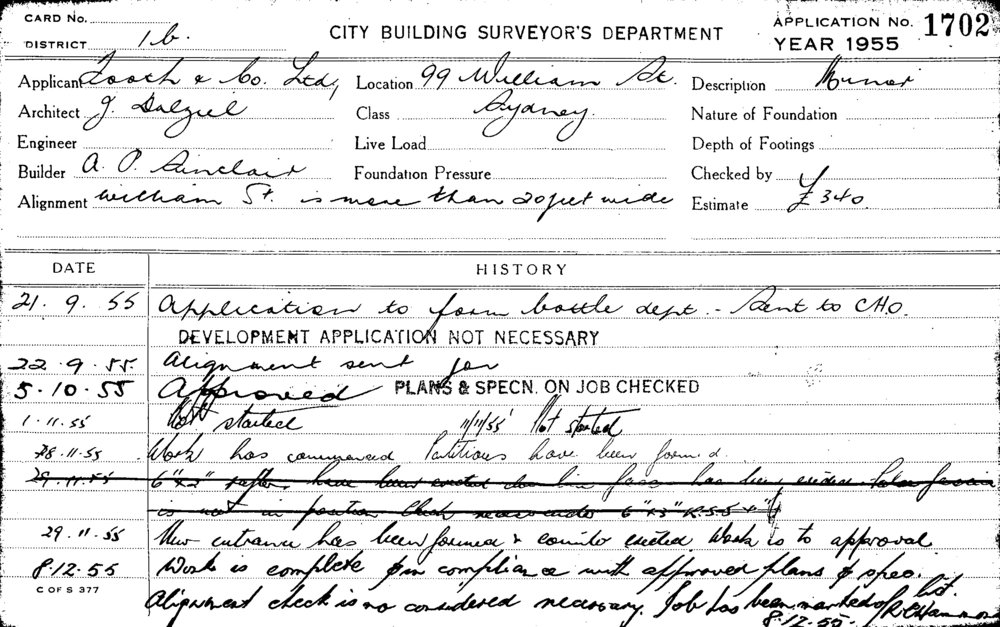 CARD No.
DISTRICT 1b.
CITY BUILDING SURVEYOR'S DEPARTMENT
APPLICATION No. 1702
YEAR 1955
Applicant Tooth & Co. Ltd, Location 99 William St. Description Minor
Architect J. Dalziel Class Sydney. Nature of Foundation
Engineer Live Load Depth of Footings
Builder A. P. Sinclair Foundation Pressure Checked by
Alignment William St. is more than 20 feet wide Estimate £340.
DATE HISTORY
21. 9. 55 Application to form bottle dept. - Sent to CHO.
DEVELOPMENT APPLICATION NOT NECESSARY
22.9.55. Alignment sent for
5.10.55 Approved PLANS & SPECN. ON JOB CHECKED
1.11.55 Not started 11/11/55 Not started
28.11.55 Work has commenced Partitions have been formed
29.11.55 6"x2" rafters have been erected has been
is not in position 6"x3" R.S.J
29.11.55 New entrance has been formed & counter erected Work is to approval.
8.12.55 Work is complete & in compliance with approved plans & spec.
C OF S 377
Alignment check is no considered necessary. Job has been marked off list.
8.12.55.